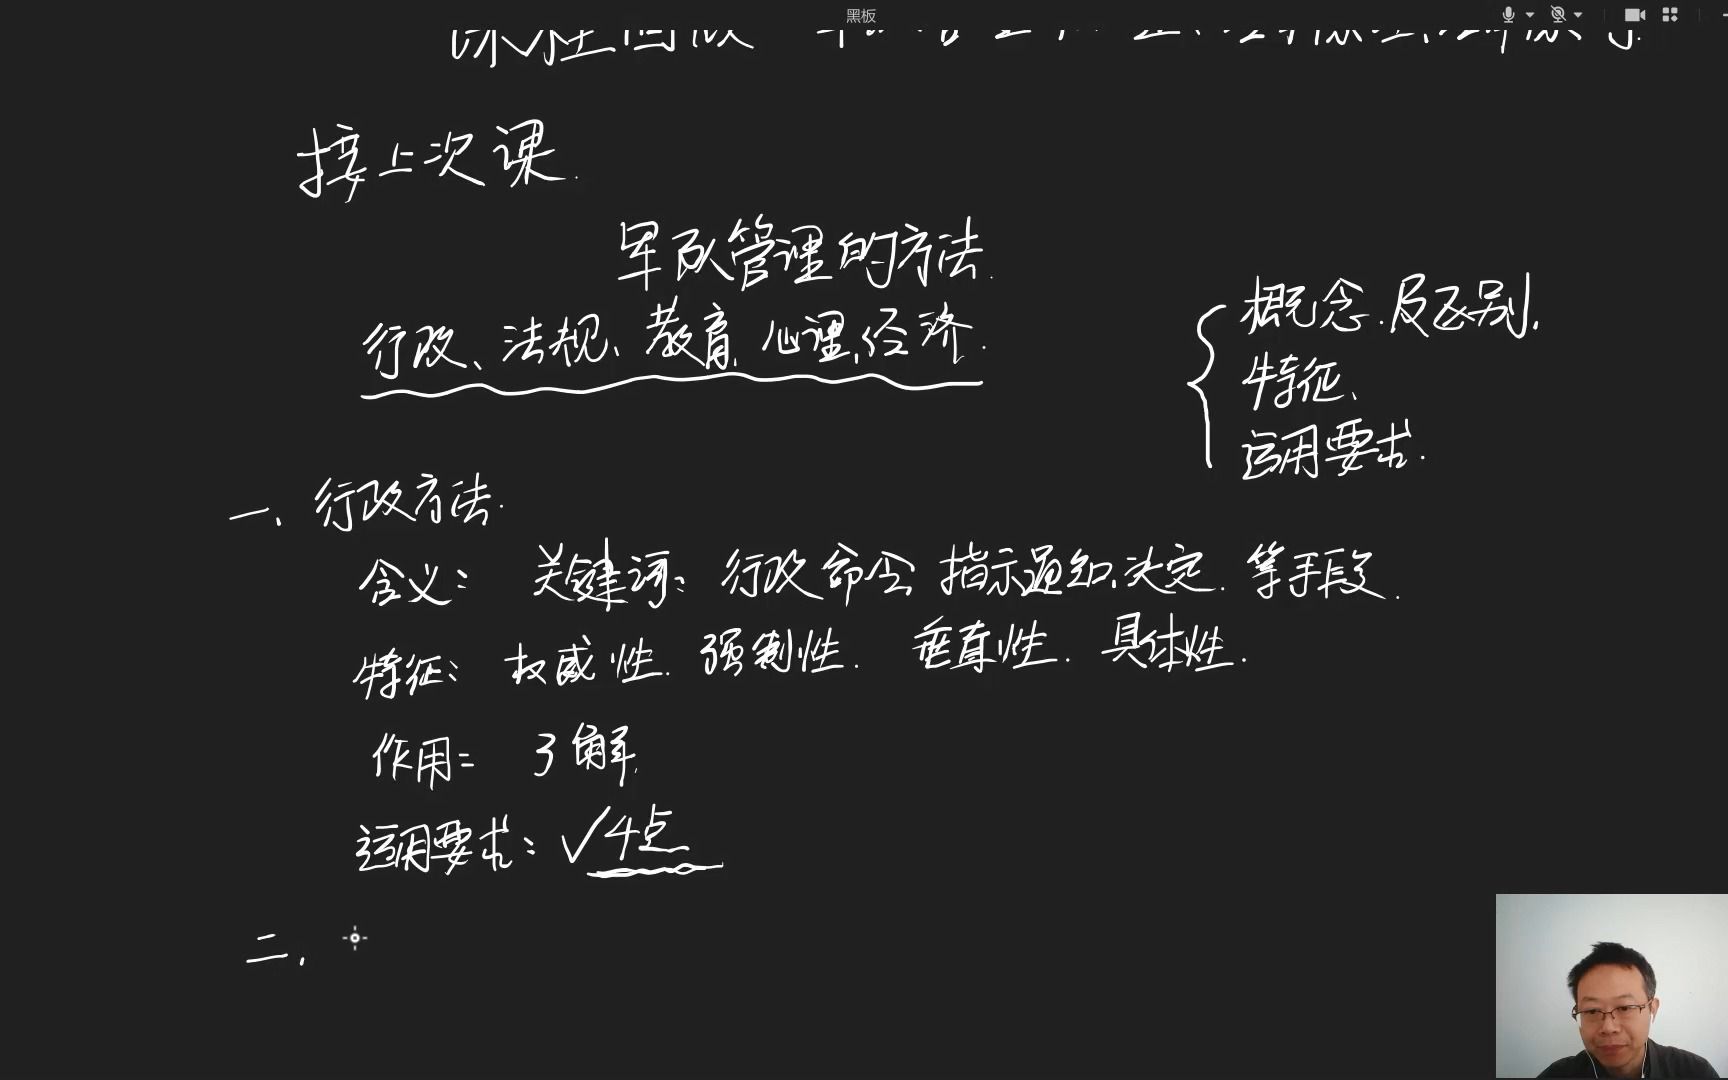 黑板
接上次课.
军队管理的方法.
行政、法规、教育、心理、经济.
概念.及区别.
特征、
运用要求.
一、行政方法.
含义: 关键词: 行政命令 指示通知、决定. 等手段.
特征: 权威性. 强制性. 垂直性. 具体性.
作用: 了解.
运用要求: √4点
二、